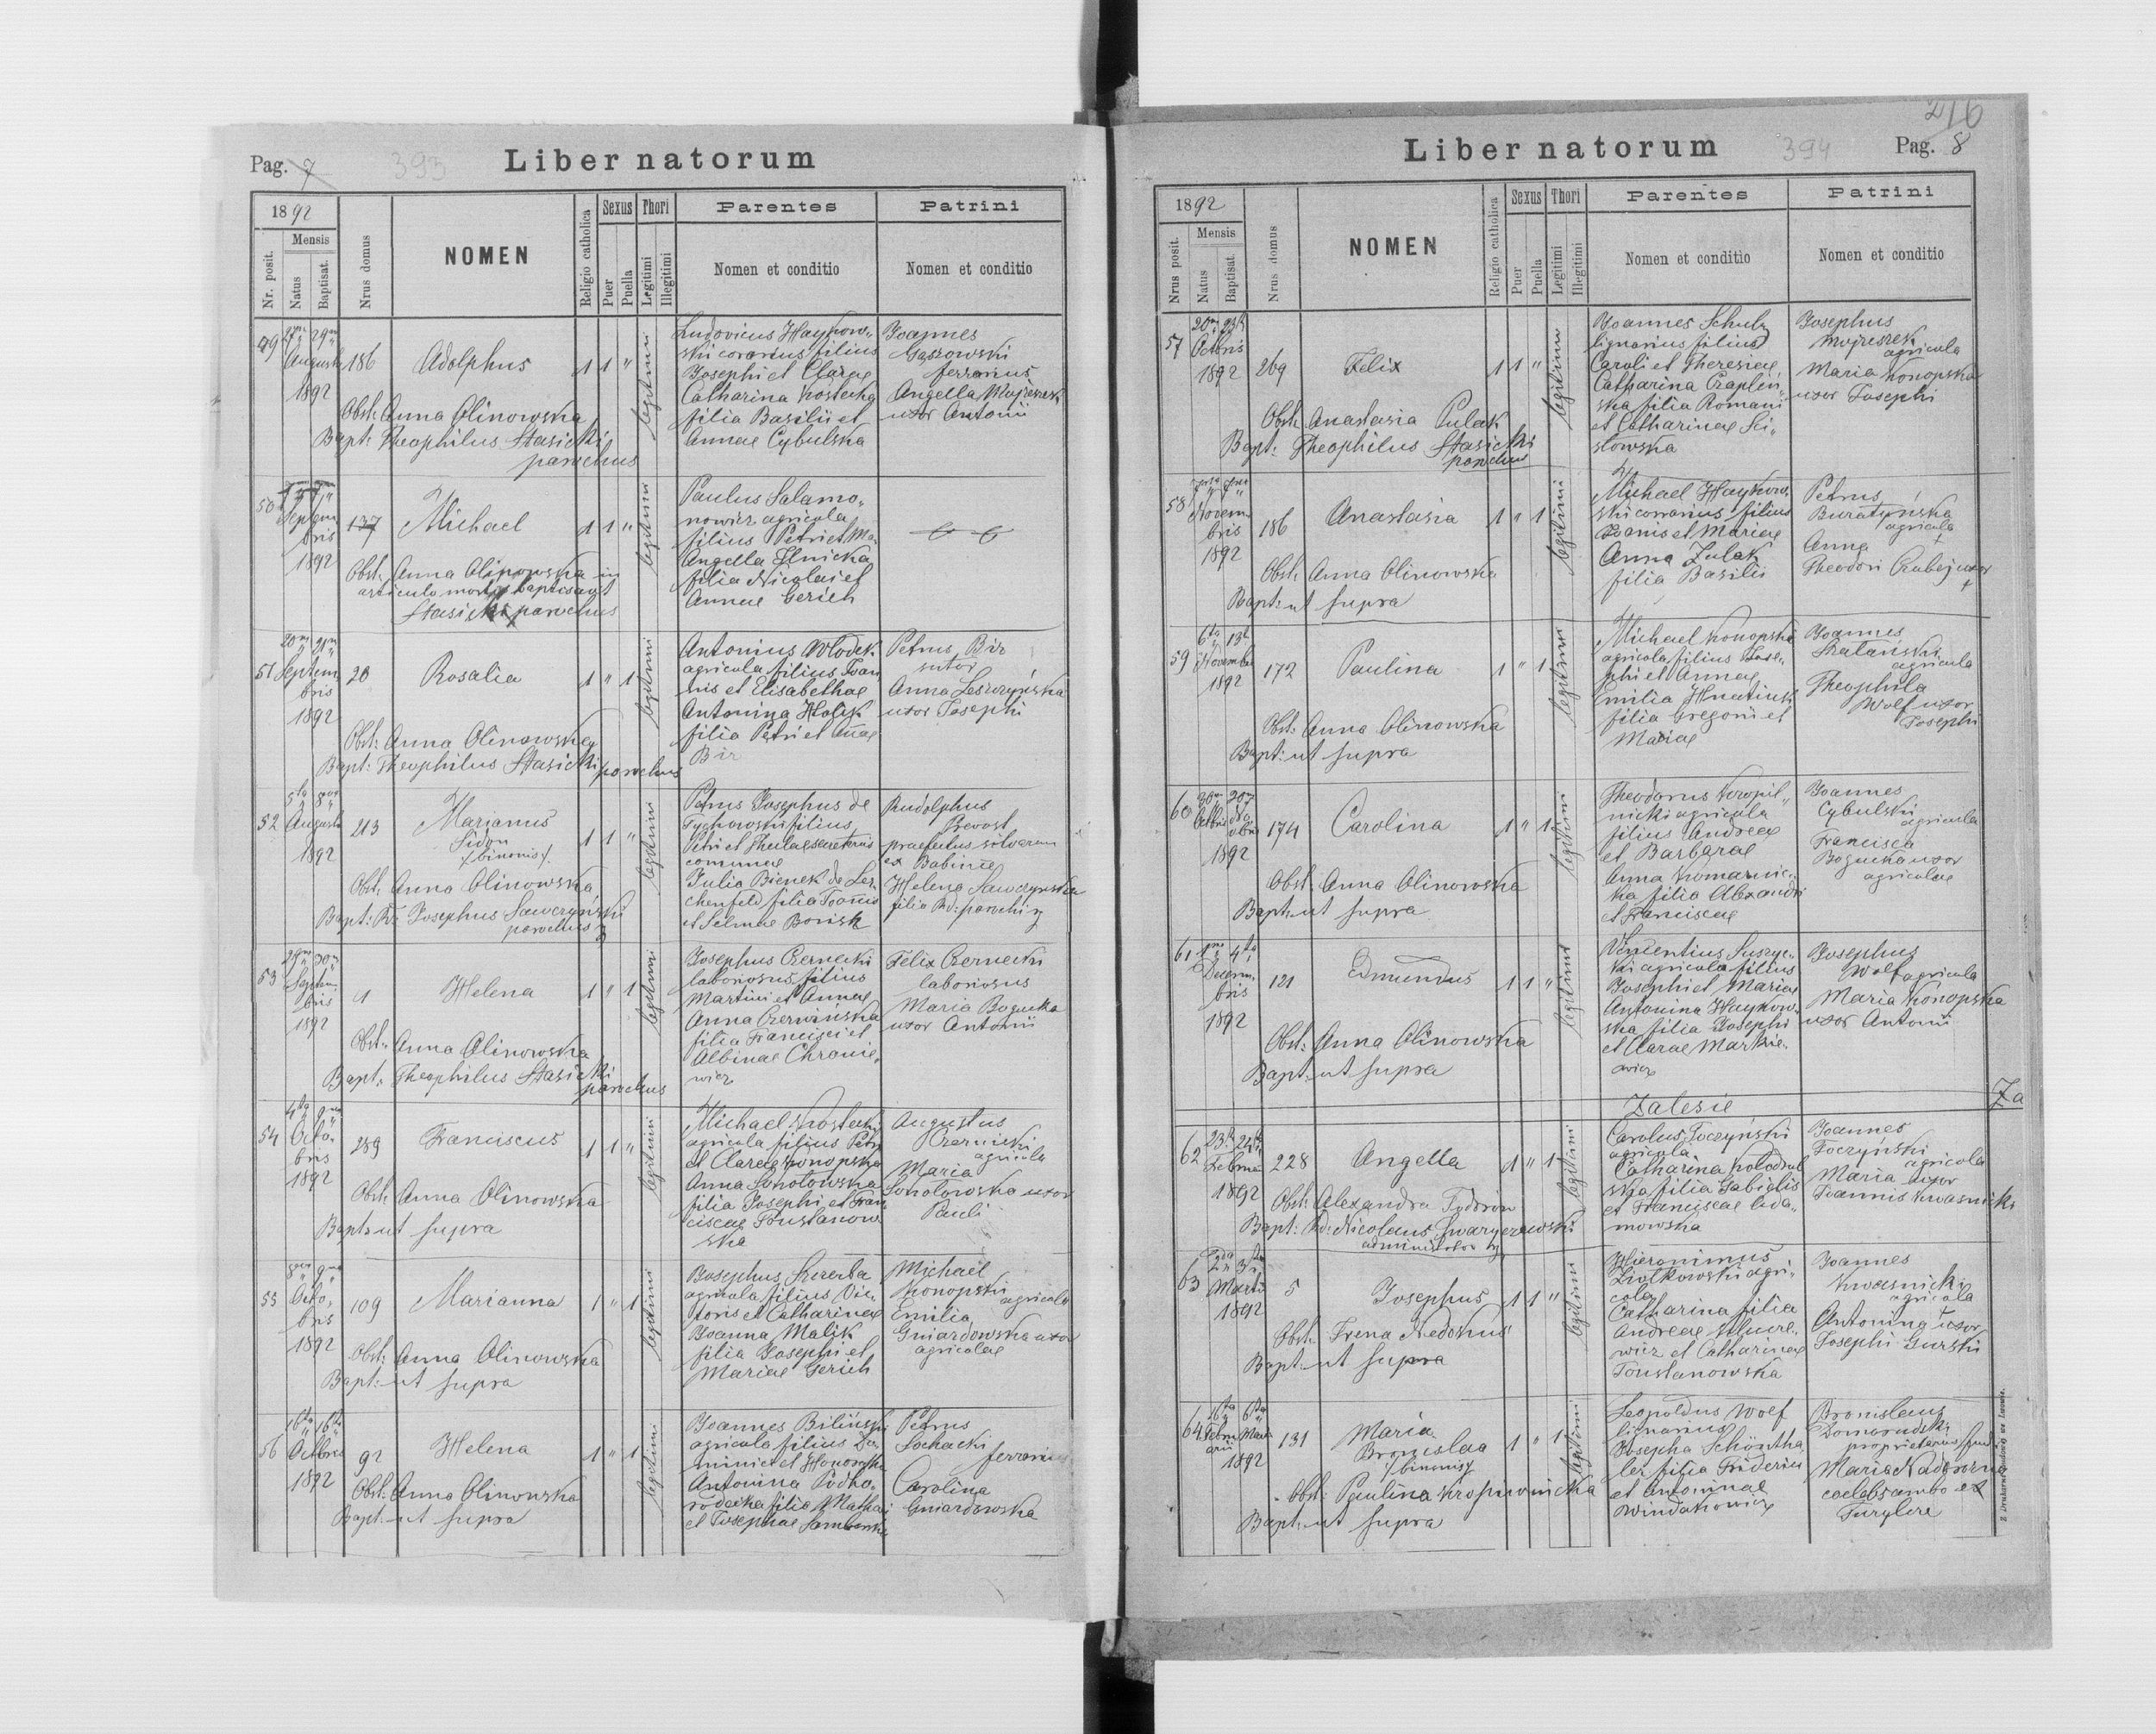 Pag. 7
393
Liber natorum
1892
Nr. posit.
Mensis
Natus
Baptisat.
Nrus domus
NOMEN
Religio catholica
Sexus
Puer
Puella
Thori
Legitimi
Illegitimi
Parentes
Nomen et conditio
Patrini
Nomen et conditio
49
27
29
Augusti
1892
186
Adolphus
1 1 "
legitimi
Ludovicus Haykow-
ski coriarius filius
Josephi et Clarae
Catharina Kostecka
filia Basilii et
Annae Cybulska
Joannes
Gaszowski
ferrarius
Angella
uxor Antonii
Obst: Anna Olinowska
Bapt: Theophilus Stasicki
parochus
50
Septem
bris
1892
177
Michael
1 1 "
legitimi
Paulus Salamo-
nowicz agricola
filius Petri et Ma.
Angella Ilnicka
filia Nicolai et
Annae Gerich
Obst: Anna Olinowska in
articulo mortis baptisavit
Stasicki parochus
51
20
21
Septem
bris
1892
20
Rosalia
1 " 1
legitimi
Antonius Wlodek
agricola filius Joan
nis et Elisabethae
Antonina
filia Petri et Annae
Bir
Petrus Bir
sutor
Anna Leszczyńska
uxor Josephi
Obst: Anna Olinowska
Bapt: Theophilus Stasicki parochus
52
5ta
8va
Augusti
1892
213
Marianus
Sidon
/:binomis:/
1 1 "
legitimi
Petrus Josephus de
Tychowski filius
Petri et Theclae secretarius
comunae
Julia Bienek de Les-
chenfeld filia Joannis
et Selmae Borisk
Rudolphus
Prevost
praefectus silvarum
ex Babince
Helena Sawczyńska
filia Rd: parochi
Obst: Anna Olinowska
Bapt: Rd: Josephus Sawczyński
parochus
53
29
30
Septem
bris
1892
1
Helena
1 " 1
legitimi
Josephus Czernecki
laboriosus filius
Martini et Annae
Anna Czerwińska
filia Francisci et
Albinae Chranie-
wicz
Felix Czernecki
laboriosus
Maria Bogucka
uxor Antonii
Obst: Anna Olinowska
Bapt: Theophilus Stasicki
parochus
54
4ta
9na
Octo-
bris
1892
289
Franciscus
1 1 "
legitimi
Michael Kostecki
agricola filius Petri
et Clarae Konopska
Anna Sokolowska
filia Josephi et Fran
ciscae Toustanow-
ska
Augustus
Czernicki
agricola
Maria
Sokolowska uxor
Pauli
Obst: Anna Olinowska
Bapt: ut supra
55
8va
9na
Octo-
bris
1892
109
Marianna
1 " 1
legitimi
Josephus Szczerba
agricola filius Vic-
toris et Catharinae
Joanna Malik
filia Josephi et
Mariae Gerich
Michael
Konopski
agricola
Emilia
Gniardowska uxor
agricolae
Obst: Anna Olinowska
Bapt: ut supra
56
16ta
16ta
Octobris
1892
92
Helena
1 " 1
legitimi
Joannes Biliński
agricola filius Do-
minici et
Antonina Podho-
rodecka filia Mathaei
et Josephae
Petrus
Sochacki
ferrarius
Carolina
Gniardowska
Obst: Anna Olinowska
Bapt: ut supra
216
Liber natorum
394
Pag. 8
1892
Nrus posit.
Mensis
Natus
Baptisat.
Nrus domus
NOMEN
Religio catholica
Sexus
Puer
Puella
Thori
Legitimi
Illegitimi
Parentes
Nomen et conditio
Patrini
Nomen et conditio
57
20
23
Octbris
1892
269
Felix
1 1 "
legitimi
Joannes Schulz
lignarius filius
Caroli et Theresiae
Catharina Czaplin-
ska filia Romani
et Catharinae Sci-
slowska
Josephus
agricola
Maria Konopska
uxor Josephi
Obst: Anastasia Pulak
Bapt: Theophilus Stasicki
parochus
58
Novem-
bris
1892
186
Anastasia
1 " 1
legitimi
Michael Haykow-
ski coriarius filius
Joannis et Mariae
Anna Zulak
filia Basilii
Petrus
Buratyńska
agricola
+
Anna
Theodori uxor
+
Obst: Anna Olinowska
Bapt: ut supra
59
6ta
13
Novembr
1892
172
Paulina
1 " 1
legitimi
Michael Konopski
agricola filius Jose-
phi et Annae
Emilia Hnatiuk
filia Gregorii et
Mariae
Joannes
agricola
Theophila
Wolf uxor
Josephi
Obst: Anna Olinowska
Bapt: ut supra
60
30
20
Octbris
1892
174
Carolina
1 " 1
legitimi
Theodorus Kropil-
nicki agricola
filius Andreae
et Barbarae
Anna Komarnic-
ka filia Alexandri
et Franciscae
Joannes
Cybulski
agricola
Francisca
Bogucka uxor
agricolae
Obst: Anna Olinowska
Bapt: ut supra
61
1
4ta
Decem-
bris
1892
121
Edmundus
1 1 "
legitimi
Vincentius Suszyc-
ki agricola filius
Josephi et Mariae
Antonina Haykow-
ska filia Josephi
et Clarae Markie-
wicz
Josephus
Wolf agricola
Maria Konopska
uxor Antonii
Obst: Anna Olinowska
Bapt: ut supra
Zalesie
7a
62
23
24
Februa
1892
228
Angella
1 " 1
legitimi
Carolus Toczyński
agricola
Catharina Kolodzul
ska filia Gabrielis
et Franciscae Ada-
mowska
Joannes
Toczyński
agricola
Maria uxor
Joannis Kwasnicki
Obst: Alexandra Fydorów
Bapt: Rd: Nicolaus Swaryczewski
administrator
63
2da
3tia
Martii
1892
5
Josephus
1 1 "
legitimi
Hieronimus
Ziolkowski agri-
cola
Catharina filia
Andreae
wicz et Catharinae
Toustanowska
Joannes
Kwasnicki
agricola
+
Antonina uxor
Josephi Gurski
Obst: Irena Nedokus
Bapt: ut supra
64
16ta
6ta
Febru
arii
Martii
1892
131
Maria
Bronislaa
/:binomis:/
1 " 1
legitimi
Leopoldus Wolf
lignarius
Josepha Schöntha
ler filia Friderici
et Antoninae
Windakiewicz
Bronislaus
Domaradzki
proprietarius fund
Maria
caelebs ambo ex
Turylcze
Obst: Paulina Kropiwnicka
Bapt: ut supra